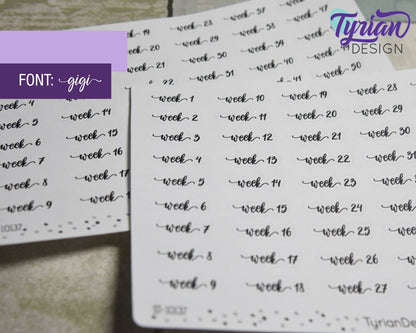 Tyrian
DESIGN
FONT: gigi
week 19
week 28
week 37
week 47
week 20
week 29
week 38
week 21
week 30
week 39
week 49
week 22
week 31
week 40
week 50
week 41
week 4
week 14
week 5
week 15
week 6
week 16
week 7
week 17
week 8
week 9
10137
week 1
week 10
week 19
week 28
week 2
week 11
week 20
week 29
week 3
week 12
week 21
week 30
week 4
week 13
week 22
week 31
week 5
week 14
week 23
week 6
week 15
week 24
week 7
week 16
week 25
week 8
week 17
week 26
week 9
week 18
week 27
TyrianDe